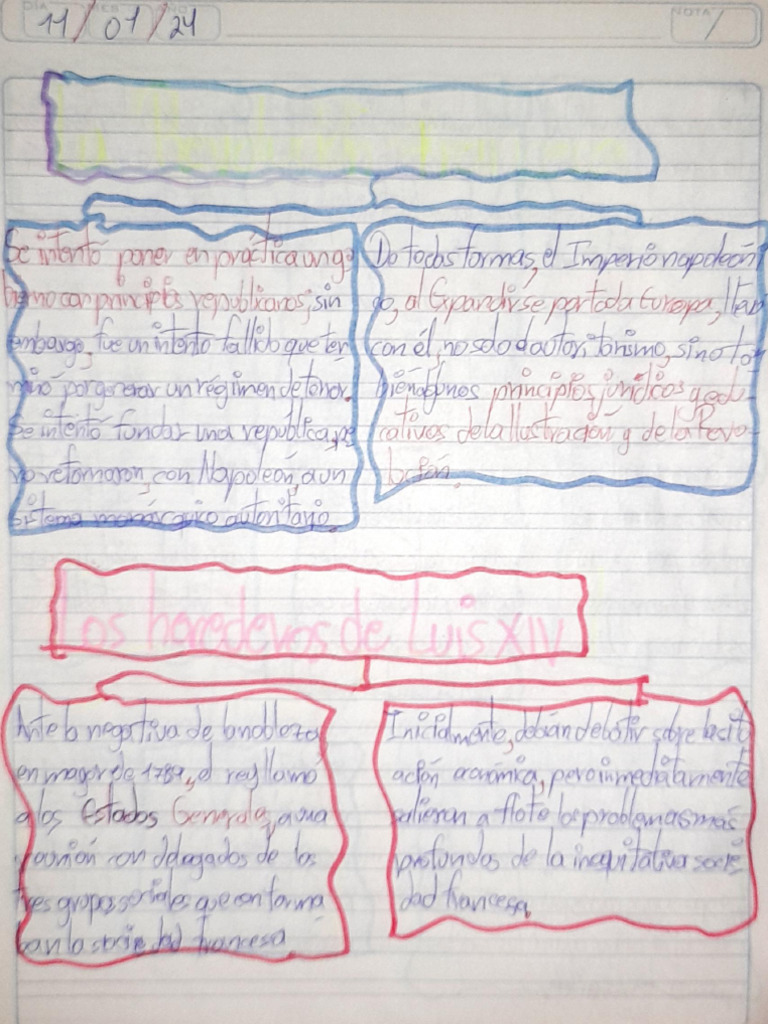 11/01/24
NOTA
La Revolución francesa
Se intentó poner en práctica un go
bierno con principios republicanos, sin
embargo, fue un intento fallido que ter
minó por generar un régimen de terror.
Se intentó fundar una republica, pe
ro retornaron, con Napoleón, a un
sistema monárquico autoritario.
De todas formas, el Imperio napoleón
co, al Expandirse por toda Europa, llevó
con él, no solo d autoritarismo, sino ta
bién algunos principios jurídicos y edu
cativos de la Ilustración y de la Revo
lución.
Los herederos de Luis XIV
Ante la negativa de la nobleza
en mayor de 1789, el rey llamó
a los Estados Generales, a una
reunión con delegados de los
tres grupos sociales que conforma
ban la sociedad francesa
Inicialmente, debían debatir sobre la situ
ación económica, pero inmediatamente
salieron a flote los problemas más
profundos de la inequitativa socie
dad francesa.